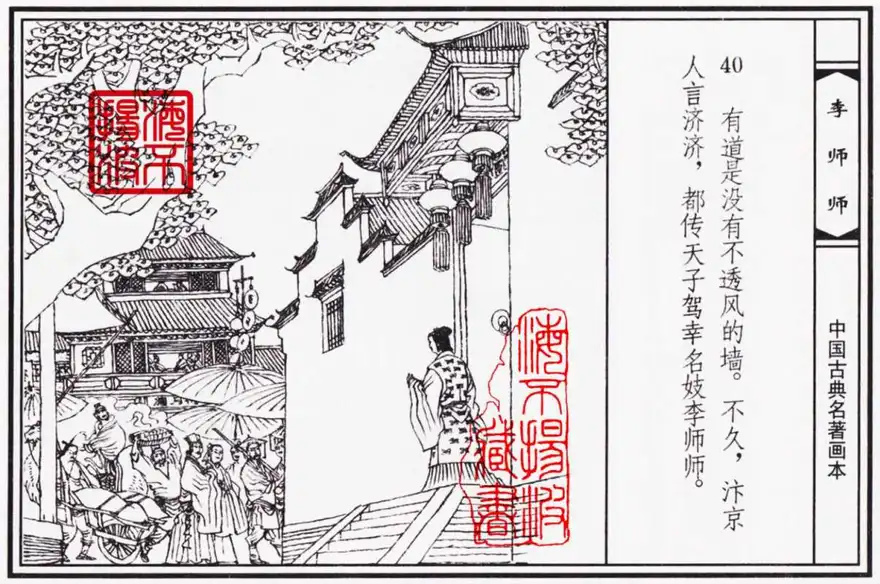 40
有道是没有不透风的墙。不久，汴京
人言济济，都传天子驾幸名妓李师师。
李师师
中国古典名著画本